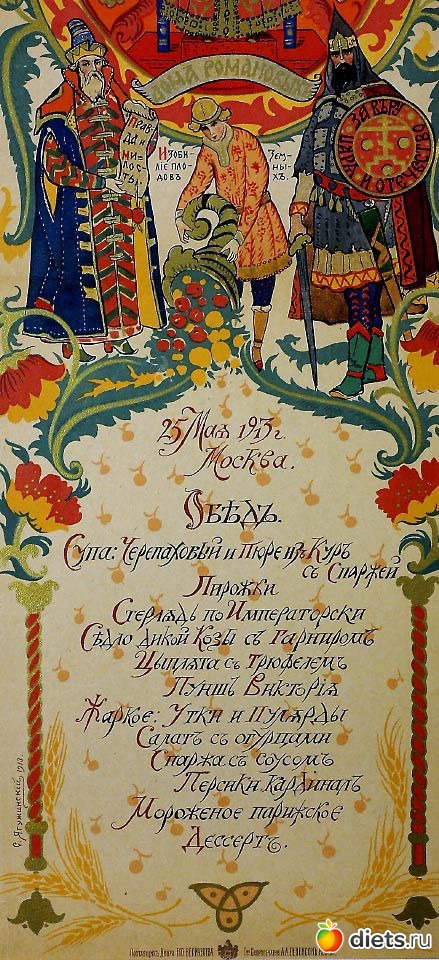 МАЯ РОМАНОВЫХЪ
ПРАВ
ДА И
МИ-
ЛОСТЬ
ИЗОБИ-
ЛІЕ ПЛО-
ДОВЪ
ЗЕМ-
НЫХЪ.
ЗА ВѢРУ
И ОТЕЧЕСТВО
25 Мая 1913 г.
Москва.
Обѣдъ.
Супа: Черепаховый и Пюре изъ Куръ
съ Спаржей
Пирожки
Стерлядь по Императорски
Сѣдло дикой Козы съ Гарниромъ
Цыплята съ трюфелемъ
Пуншъ Викторія
Жаркое: Утки и Пулярды
Салатъ съ огурцами
Спаржа съ соусомъ
Персики Кардіналъ
Мороженое парижское
Дессертъ.
С. Ягужинскій, 1913.
Поставщикъ Двора ЕГО ВЕЛИЧЕСТВА
Т-во Скоропечатни А.А. ЛЕВЕНСОНЪ
diets.ru